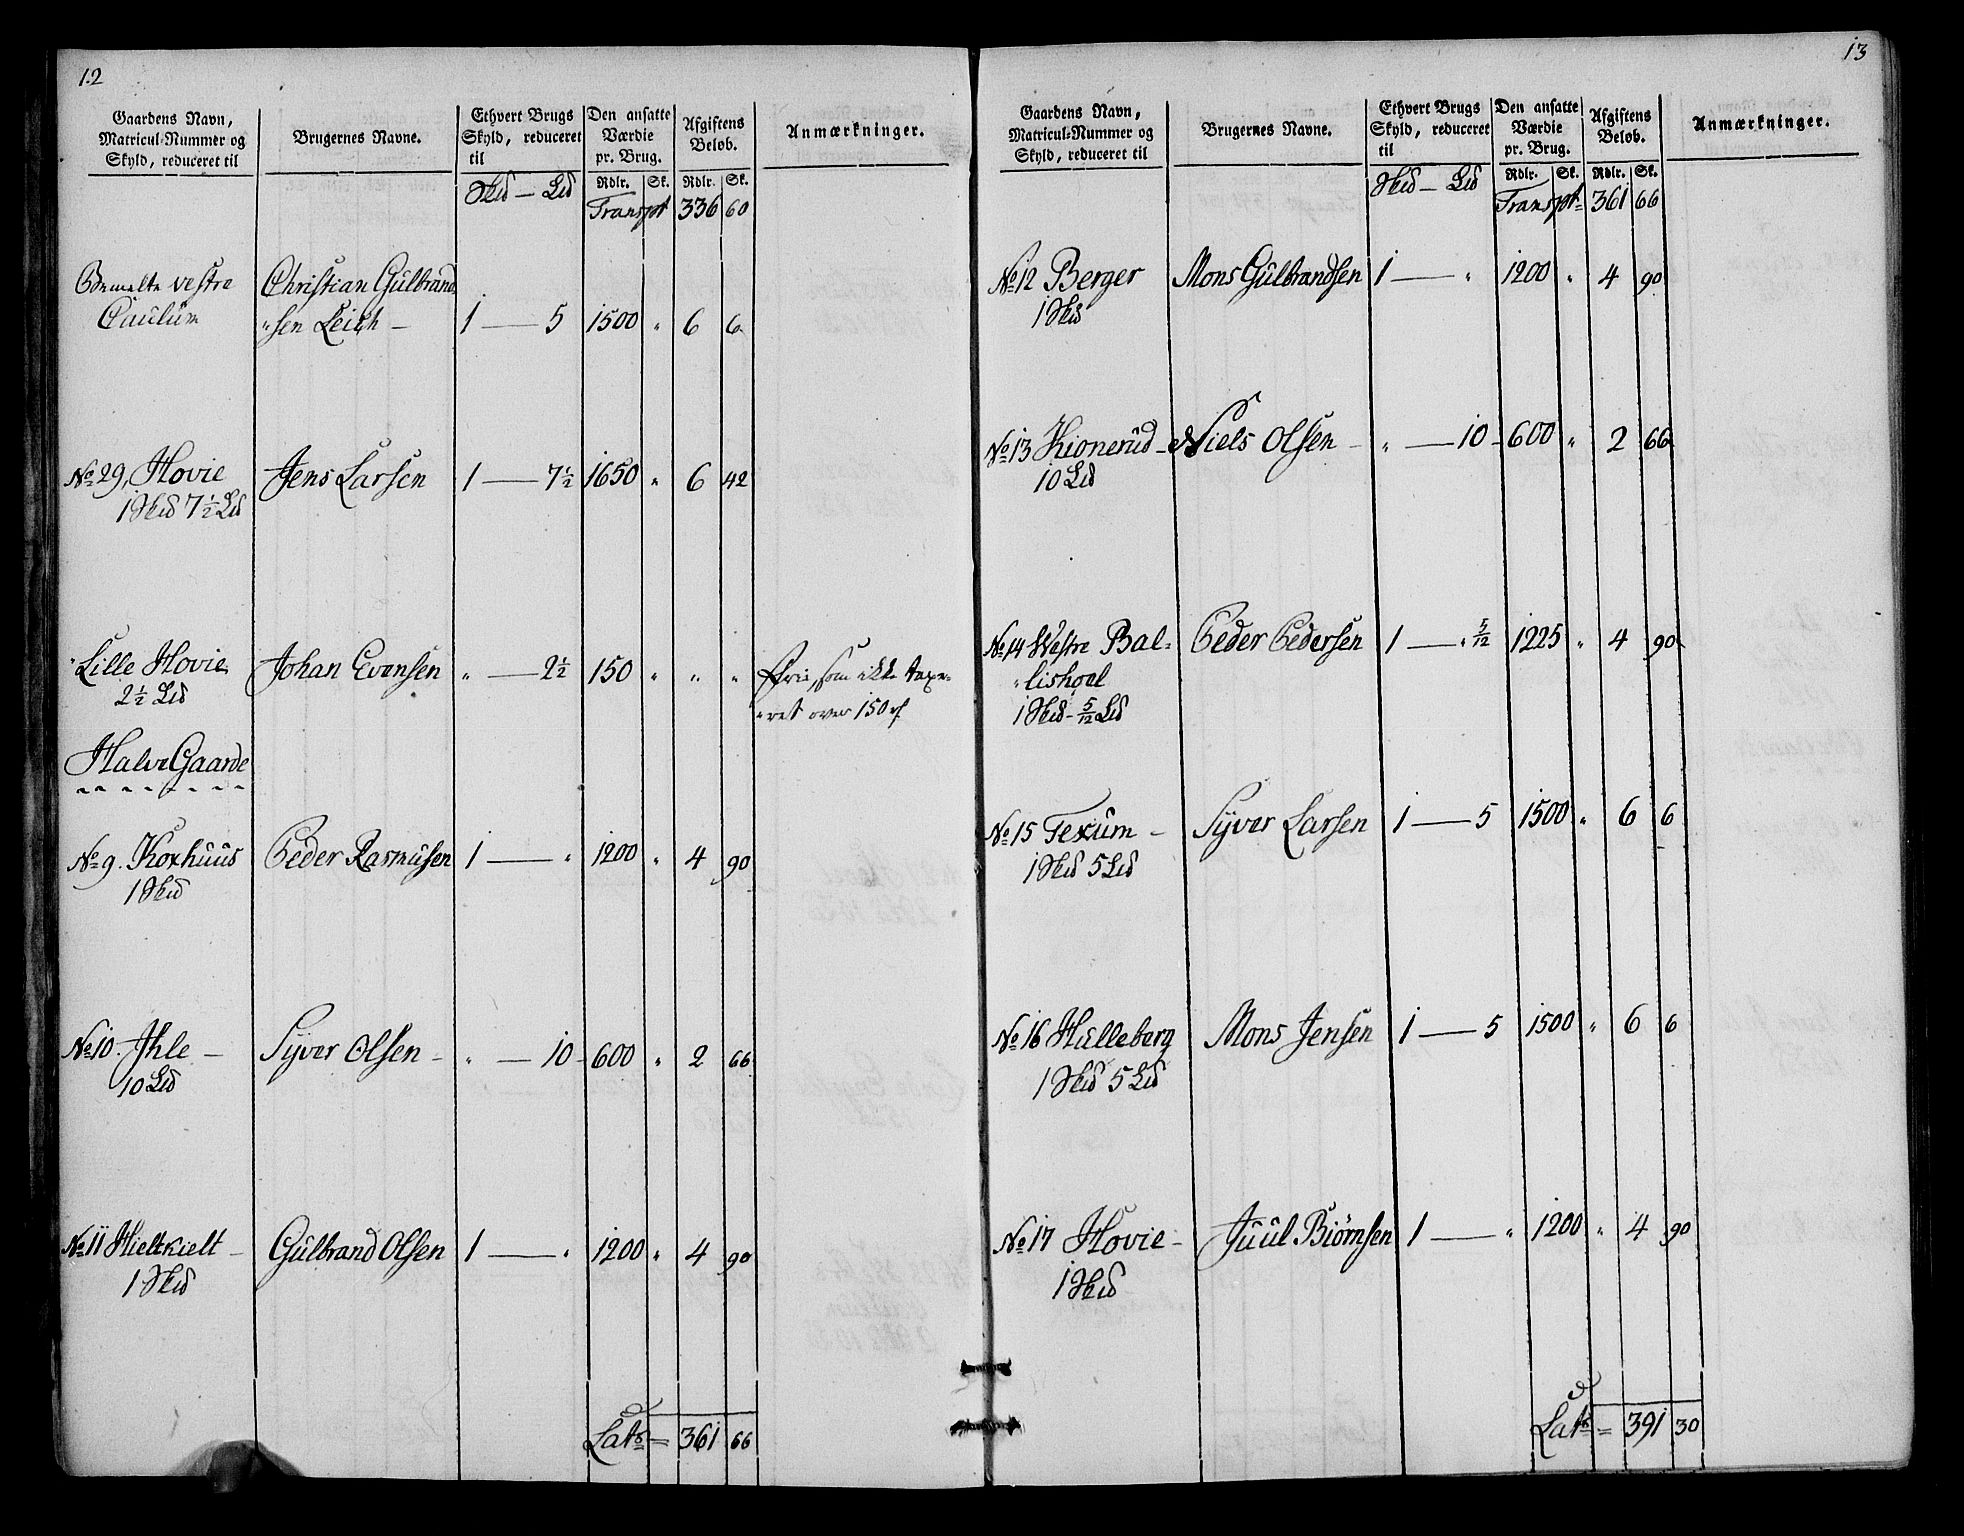 12
Gaardens Navn, Matricul-Nummer og Skyld, reduceret til
Brugernes Navne.
Ethvert Brugs Skyld, reduceret til
Den ansatte Værdie pr. Brug.
Afgiftens Beløb.
Anmærkninger.
Skd — Ld
Rdlr. Sk. Rdlr. Sk.
Transpt 336 60
vestre Christian Gulbrand
Caulum "sen Leich — 1 — 5 1500 " 6 6
No 29, Hovie Jens Larsen 1 — 7½ 1650 " 6 42
1 Skd 7½ Ld
Lille Hovie Johan Evensen " — 2½ 150 " " " Frie, som ikke taxe-
2½ Ld "ret over 150 rd
Halve Gaarde
No 9. Koxhuus Peder Rasmusen 1 — " 1200 " 4 90
1 Skd
No 10. Ihle — Syver Olsen — " — 10 600 " 2 66
10 Ld
No 11 Hieltkielt — Gulbrand Olsen 1 — " 1200 " 4 90
1 Skd
Lats = 361 66
13
Gaardens Navn, Matricul-Nummer og Skyld, reduceret til
Brugernes Navne.
Ethvert Brugs Skyld, reduceret til
Den ansatte Værdie pr. Brug.
Afgiftens Beløb.
Anmærkninger.
Skd — Ld
Rdlr. Sk. Rdlr. Sk.
Transpt 361 66
No 12 Berger Mons Gulbrandsen 1 — " 1200 " 4 90
1 Skd
No 13 Kionerud — Niels Olsen — " — 10 600 " 2 66
10 Ld
No 14 Westre Bal- Peder Pedersen 1 — " 5/12 1225 " 4 90
"lishoel
1 Skd - 5/12 Ld
No 15 Texum — Syver Larsen 1 — 5 1500 " 6 6
1 Skd 5 Ld
No 16 Hulleberg Mons Jensen 1 — 5 1500 " 6 6
1 Skd 5 Ld
No 17 Hovie — Juul Biørnsen 1 — " 1200 " 4 90
1 Skd
Lats = 391 30